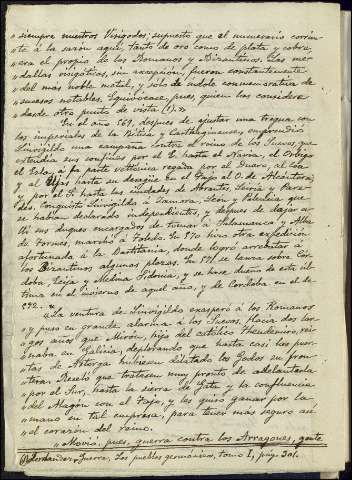 "siempre nuestros Visigodos; supuesto que el numerario corrien-
"te á la sazón aquí, tanto de oro como de plata y cobre,
"era el propio de los Romanos y Bizantinos. Las me-
"dallas visigóticas, sin excepción, fueron constantemente
"del más noble metal, y sólo de índole conmemorativa de
"sucesos notables. Equivócase, pues, quien las considere
"desde otro punto de vista (1).»
En el año 569, despues de ajustar una tregua con
los imperiales de la Bética y Cartaginense, emprendió
Liuvigildo una campaña contra el reino de los Suevos que
extendía sus confines por el E. hasta el Navia, el Orbigo
el Esla, á la parte vettónica regada por el Duero, al Coa,
y al Eljas hasta su desagüe en el Tajo al O. de Alcántara;
y por el S. hasta las ciudades de Abrantes, Leiria y Pare-
des. Conquistó Liuvigildo á Zamora, León y Palencia que
se habían declarado independientes, y despues de dejar a-
llí sus duques encargados de tomar á Salamanca y Alba
de Tormes, marchó á Toledo. En 570 hizo otra expedición
afortunada á la Bastitania, donde logró arrebatar á
los Bizantinos algunas plazas. En 571 se lanza sobre Cór-
doba, Ecija y Medina Sidonia, y se hace dueño de esta úl-
tima en el invierno de aquel año, y de Córdoba en el de
572.
«La ventura de Liuvigildo exasperó á los Romanos
"y puso en grande alarma á los Suevos. Hacía dos lar-
"gos años que Mirón, hijo del católico Theudemiro, rei-
"naba en Galicia, deplorando que hasta casi las puer-
"tas de Astorga hubiesen dilatado los Godos su fron-
"tera. Receló que tratasen muy pronto de adelantarla
"por el Sur, hasta la sierra de Gata y la confluencia
"del Alagón con el Tajo, y les quiso ganar por la
"mano en tal empresa, para tener más seguro así
"el corazón del reino.
"Movió, pues, guerra contra los Arragones, gente
(1) Fernández-Guerra, Los pueblos germánicos, tomo I, pág. 301.